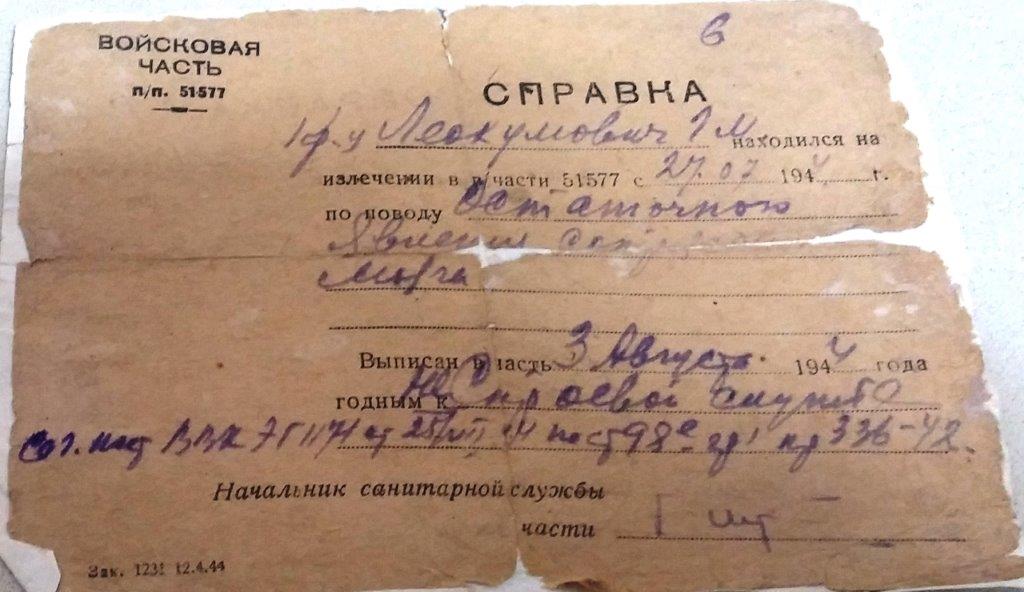 6
ВОЙСКОВАЯ
ЧАСТЬ
п/п. 51577
СПРАВКА
находился на
излечении в в/части 51577 с 27.07 1944 г.
по поводу Остаточною
Явления
мозга
Выписан в часть 3 Августа 1944 года
годным к не строевой службе
ВВК ЭГ 1171 от 336-42.
Начальник санитарной службы
части
Зак. 1231 12.4.44